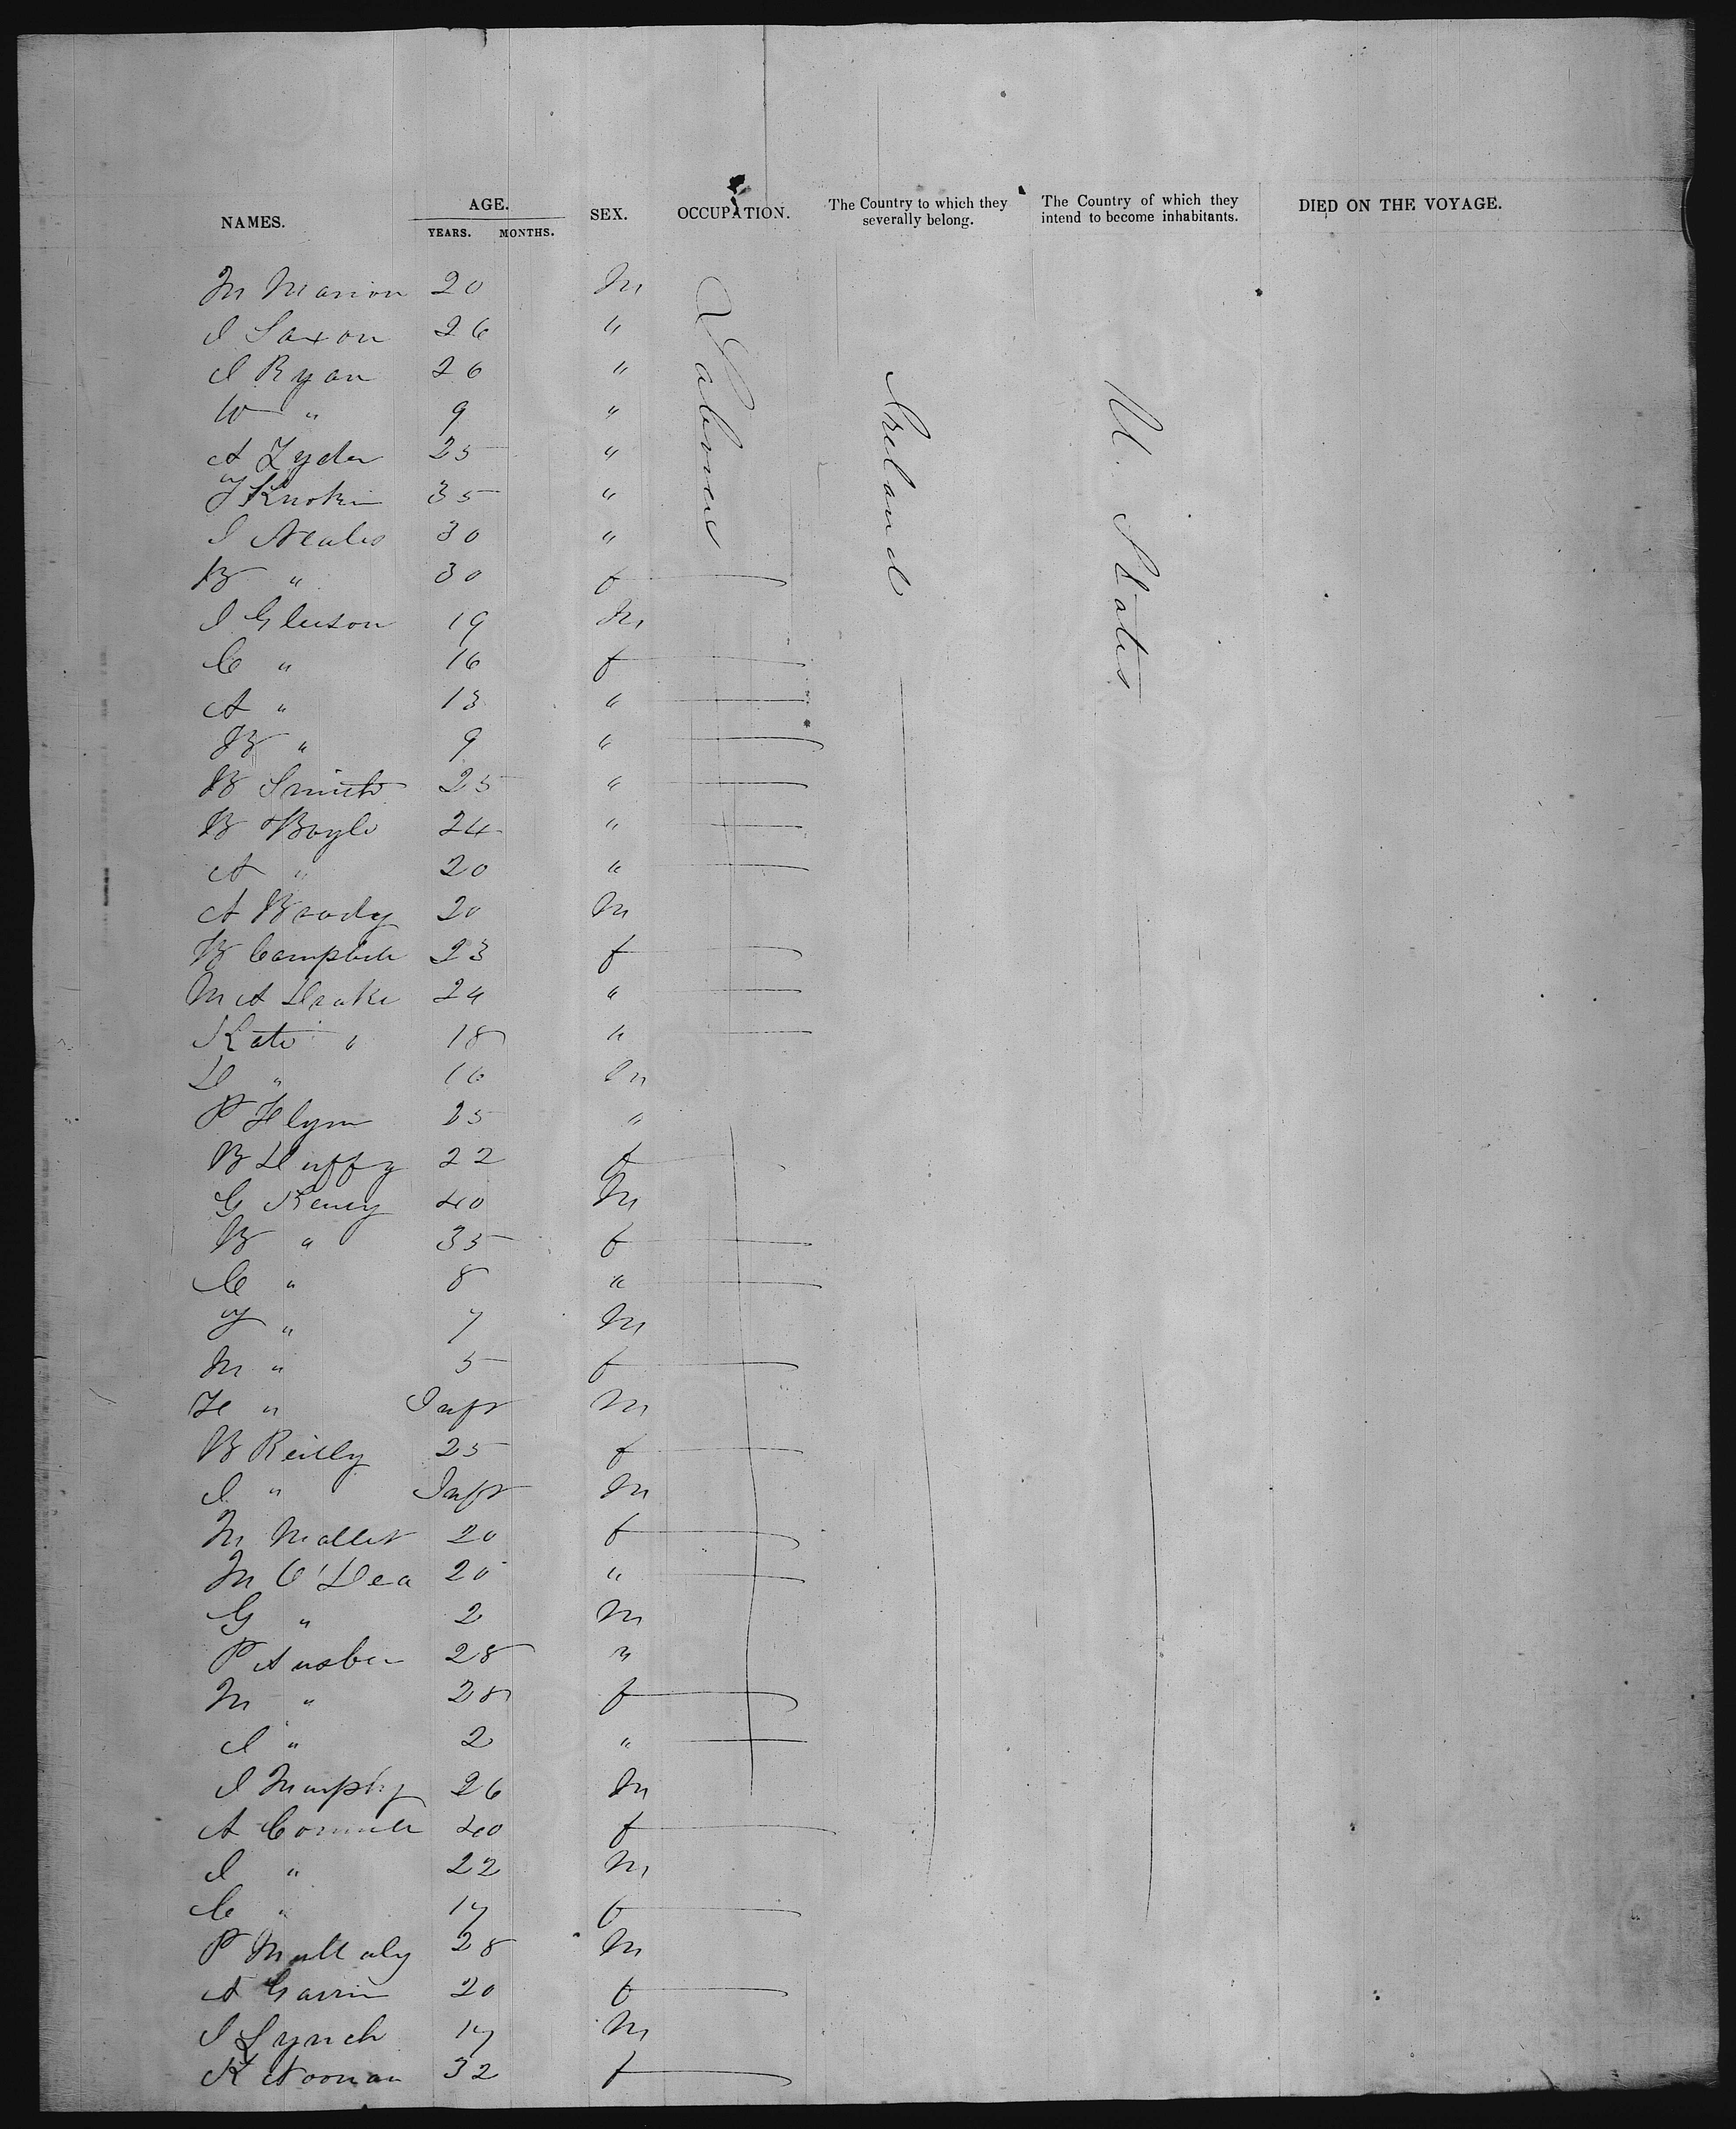 NAMES. AGE. YEARS. MONTHS. SEX. OCCUPATION. The Country to which they severally belong. The Country of which they intend to become inhabitants. DIED ON THE VOYAGE.
M Marion 20 M Labourers Ireland U. States
J Saxon 26 "
J Ryan 26 "
W " 9 "
A Lyden 25 "
35 "
J Neales 30 "
B " 30 f
J Gleeson 19 M
C " 16 f
A " 13 "
B " 9 "
B Smith 25 "
B Boyle 24 "
A " 20 "
A Brady 20 M
B Campbell 23 f
M A Drake 24 "
Kate " 18 "
D " 16 M
P Flynn 25 "
B Duffy 22 f
G Keney 40 M
B " 35 f
C " 8 "
T " 7 M
M " 5 f
F " Inft M
B Reilly 25 f
J " Inft M
M Mallet 20 f
M O'Dea 20 "
G " 2 M
P 28 "
M " 28 f
J " 2 "
J Murphy 26 M
A 40 f
J " 22 M
C " 17 f
P Mullaly 28 M
A Gavin 20 f
J Lynch 17 M
K Noonan 32 f